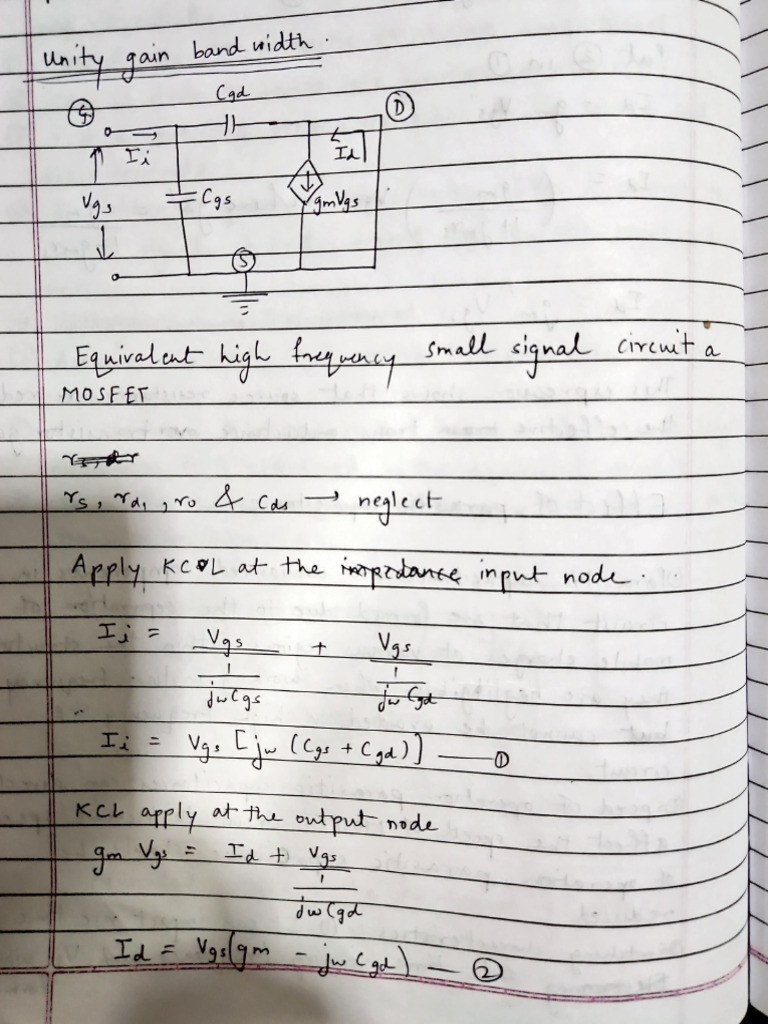 Unity gain bandwidth.
Cgd
G
D
Ii
Id
Vgs
Cgs
gmVgs
S
Equivalent high frequency small signal circuit a
MOSFET
rs, rd, , ro & Cds → neglect
Apply KCL at the impedance input node.
Ii = Vgs / (1 / jwCgs) + Vgs / (1 / jwCgd)
Ii = Vgs [jw (Cgs + Cgd)] — ①
KCL apply at the output node
gm Vgs = Id + Vgs / (1 / jwCgd)
Id = Vgs(gm - jw Cgd) — ②